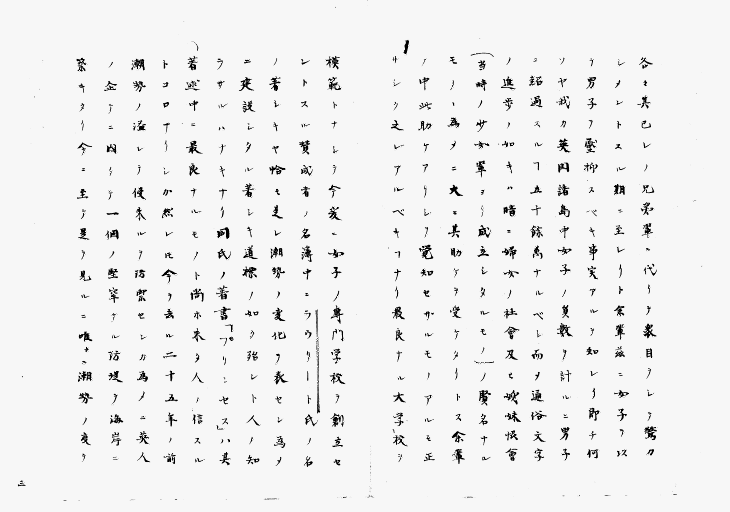 各々其已レノ兄弟輩ニ代リテ衆目ヲシテ驚カ
シメントスル期ニ至レリト余輩茲ニ女子ヲ以
テ男子ヲ壓抑スベキ事実アルヲ知レリ即チ何
ソヤ我カ英国諸島中女子ノ員数ヲ計ルニ男子
ニ超過スルヿ五十餘萬ナルベシ而メ通俗文字
ノ進歩ノ如キハ暗ニ婦女ノ社會及ヒ姉妹懇會
(当時ノ少女輩ヨリ成立シタルモノ)ノ賢名ナル
モノヽ為メニ大ニ其助ケヲ受ケタリトス余輩
ノ中此助ケアリシヲ覚知セザルモノアルモ正
シク之レアルベキヿナリ最良ナル大学校ヲ
模範トナシテ今爰ニ女子ノ専門学校ヲ創立セ
ントスル賛成者ノ名簿中ニラウリート氏ノ名
ノ著シキヤ恰モ是レ潮勢ノ変化ヲ表センカ為メ
ニ建設シタル著シキ道標ノ如ク殆ント人ノ知
ラザルハナキナリ同氏ノ著書「プリンセス」ハ其
著述中ニ最良ナルモノト尚ホ未タ人ノ信スル
トコロナリシカ然レヒ今ヲ去ル二十五年ノ前
潮勢ノ溢レテ侵来ルヲ防禦センカ為メニ英人
ノ企テニ因リテ一個ノ堅牢ナル防堤ヲ海岸ニ
築キタリ今ニ至テ是ヲ見ルニ唯タニ潮勢ノ変リ
三